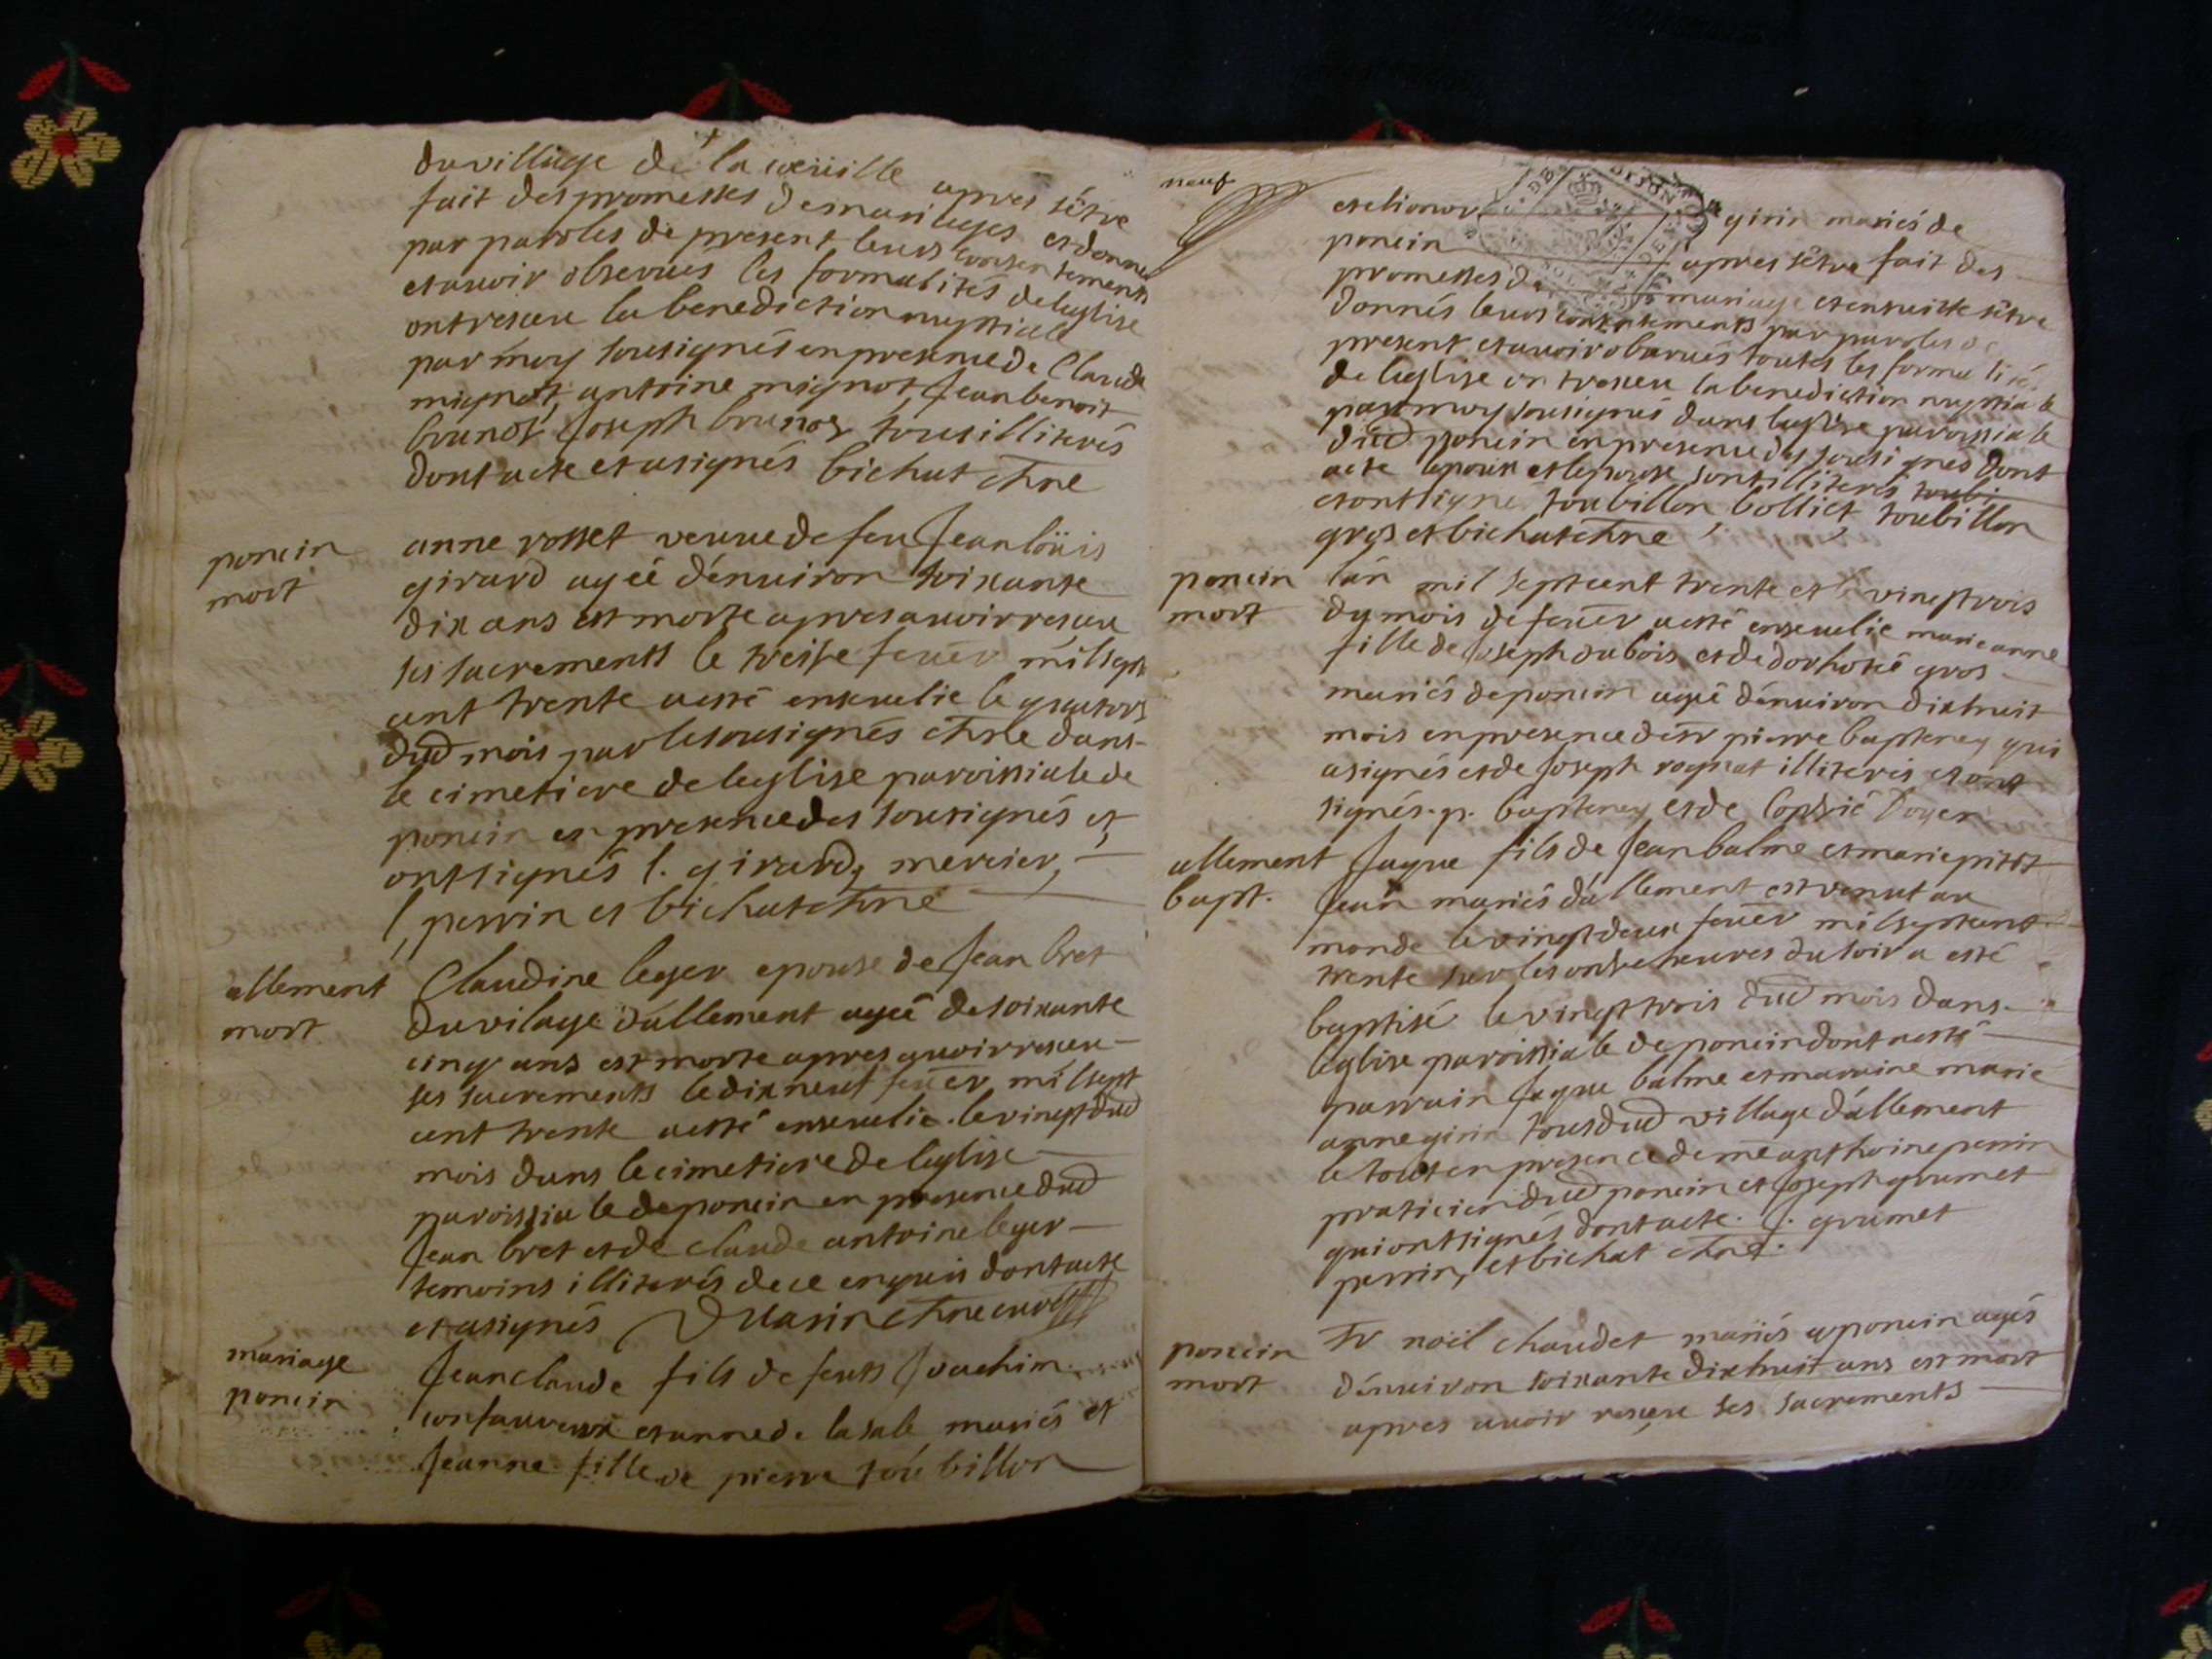 du village de la
fait des promesses de mariages apres s'être
par paroles de present leurs consentements et donnés
et avoir observués les formalités de leglise
ont resceu la benediction nuptiale
par moy sousignés en presence de Claude
mignot, antoine mignot, Jean benoit
brunot Joseph brunot tous illiterés
dont acte et a signés bichat
poncin
mort
anne rosset veuve de feu Jean loüis
girard agée d'énuiron soixante
dix ans est morte apres auoir resceu
ses sacrements le treise feuer mil sept
cent trente a esté enseuelie le quators
dud mois par le sousignés dans
le cimetiere de leglise paroissiale de
poncin en presence des sousignés et
ont signés l. girard, mercier,
perrin et bichat
allement
mort
Claudine leger epouse de Jean bret
du vilage d'allement agée de soixante
cinq ans est morte apres auoir resceu
ses sacrements le dix neuf feuer mil sept
cent trente a esté enseuelie le vingt dud
mois dans le cimetiere de leglise
paroissiale de poncin en presence dud
Jean bret et de claude antoine leger
temoins illiterés de ce enquis dont acte
et a signés
mariage
poncin
Jean claude fils de feuts Joachim
et anne de la sale mariés et
Jeanne fille de pierre toubillon
neuf
girin mariés de
poncin apres s'être fait des
promesses de mariage et ensuitte s'être
donnés leurs consentements par paroles de
present et auoir obserués toutes les formalités
de leglise ont resceu la benediction nuptiale
par moy sousignés dans leglise paroissiale
dud poncin en presence des sousignés dont
acte lepoux et lepouse sont illiterés toubi
et ont signé toubillon bolliet toubillon
gros et bichat
poncin
mort
lán mil sept cent trente et le vingt trois
du mois de feuer a esté enseuelie marie anne
fille de Joseph dubois et de dorhotée gros
mariés de poncin agée d'énuiron dixhuit
mois en presence de sr pierre bapterey qui
a signés et de Joseph rognat illiterés et ont
signés. p. bapterey
allement
bapt.
Jaque fils de Jean balme et marie pitiot
Jean mariés d'allement est venut au
monde le vingt deux feuer mil sept cent
trente sur les onse heures du soir a esté
baptisé le vingt trois dud mois dans
leglise paroissiale de poncin dont a esté
parrain Jaque balme et maraine marie
anne girin tous dud village d'allement
le tout en presence de me anthoine perrin
praticien dud poncin et Joseph grumet
qui ont signés dont acte. J. grumet
perrin, et bichat
poncin
mort
sr noël chaudet mariés a poncin agés
d'énuiron soixante dixhuit ans est mort
apres auoir resceu ses sacrements